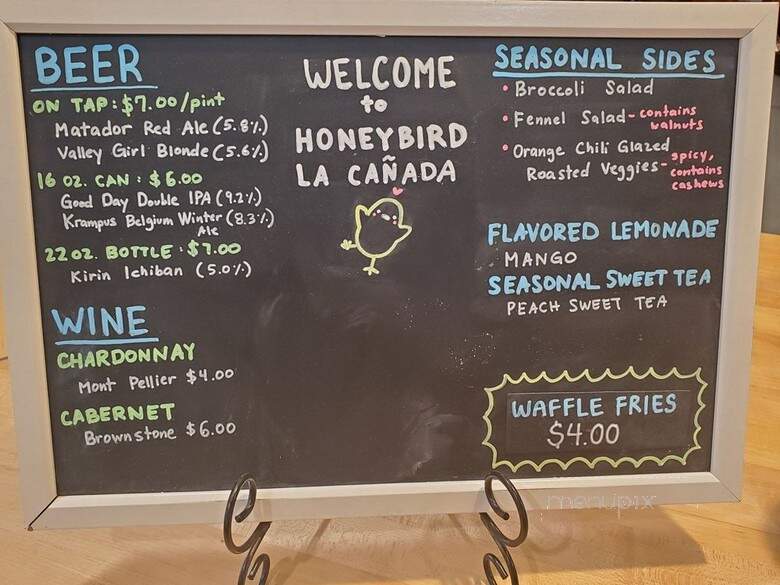 BEER
ON TAP: $7.00/pint
Matador Red Ale (5.8%)
Valley Girl Blonde (5.6%)
16 OZ. CAN: $6.00
Good Day Double IPA (9.2%)
Krampus Belgium Winter (8.3%)
Ale
22 OZ. BOTTLE: $7.00
Kirin Ichiban (5.0%)
WINE
CHARDONNAY
Mont Pellier $4.00
CABERNET
Brownstone $6.00
WELCOME
to
HONEYBIRD
LA CAÑADA
SEASONAL SIDES
• Broccoli Salad
• Fennel Salad - contains
walnuts
• Orange Chili Glazed
Roasted Veggies - spicy,
contains
cashews
FLAVORED LEMONADE
MANGO
SEASONAL SWEET TEA
PEACH SWEET TEA
WAFFLE FRIES
$4.00
menupix